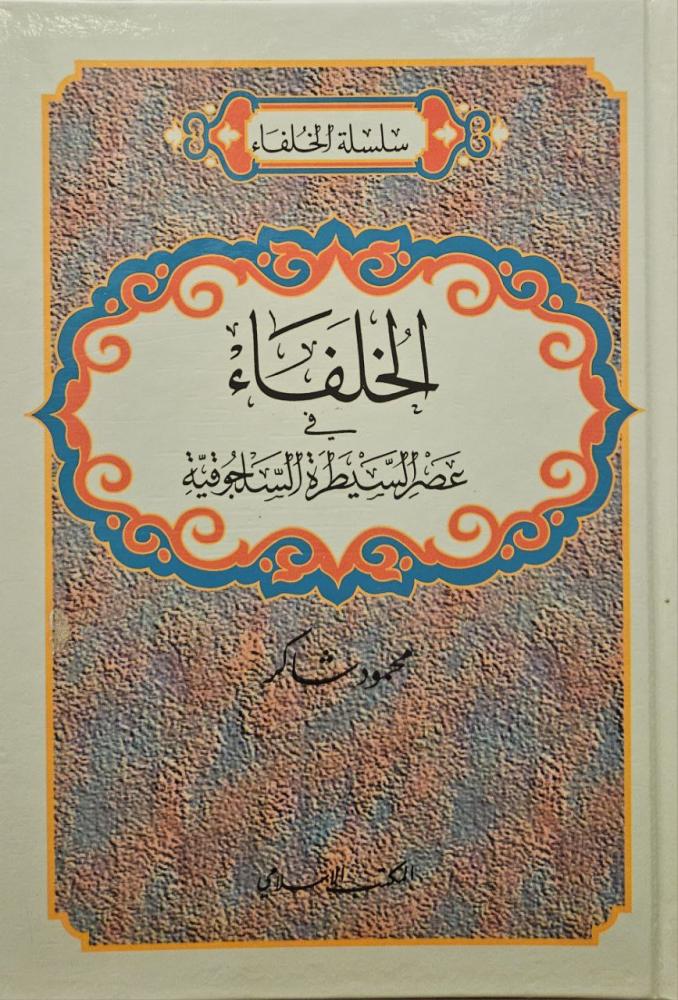 سلسلة الخُلفَاء
الخُلَفَاءْ
في
عَصْرِ السَّيْطَرَة السَّلجُوقيَّة
محمود شاكر
المكتب الإسلامي